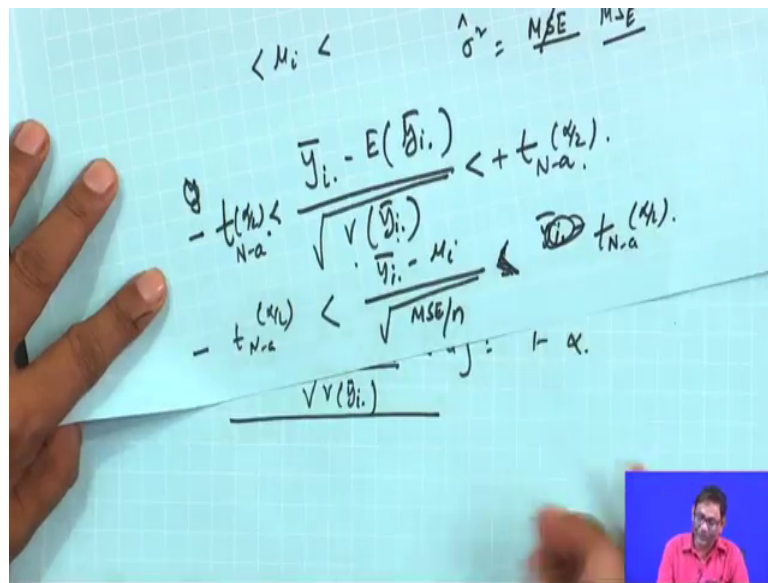 < μi < σ̂² = MSE MSE
- t_{N-a}^{(α/2)} < (ȳi. - E(ȳi.)) / √V(ȳi.) < + t_{N-a}^{(α/2)}.
- t_{N-a}^{(α/2)} < (ȳi. - μi) / √MSE/n < t_{N-a}^{(α/2)}.
1- α.
√V(ȳi.)